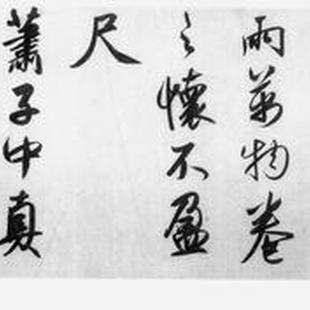 雨萬物卷
之懷不盈
尺
蕭子中真